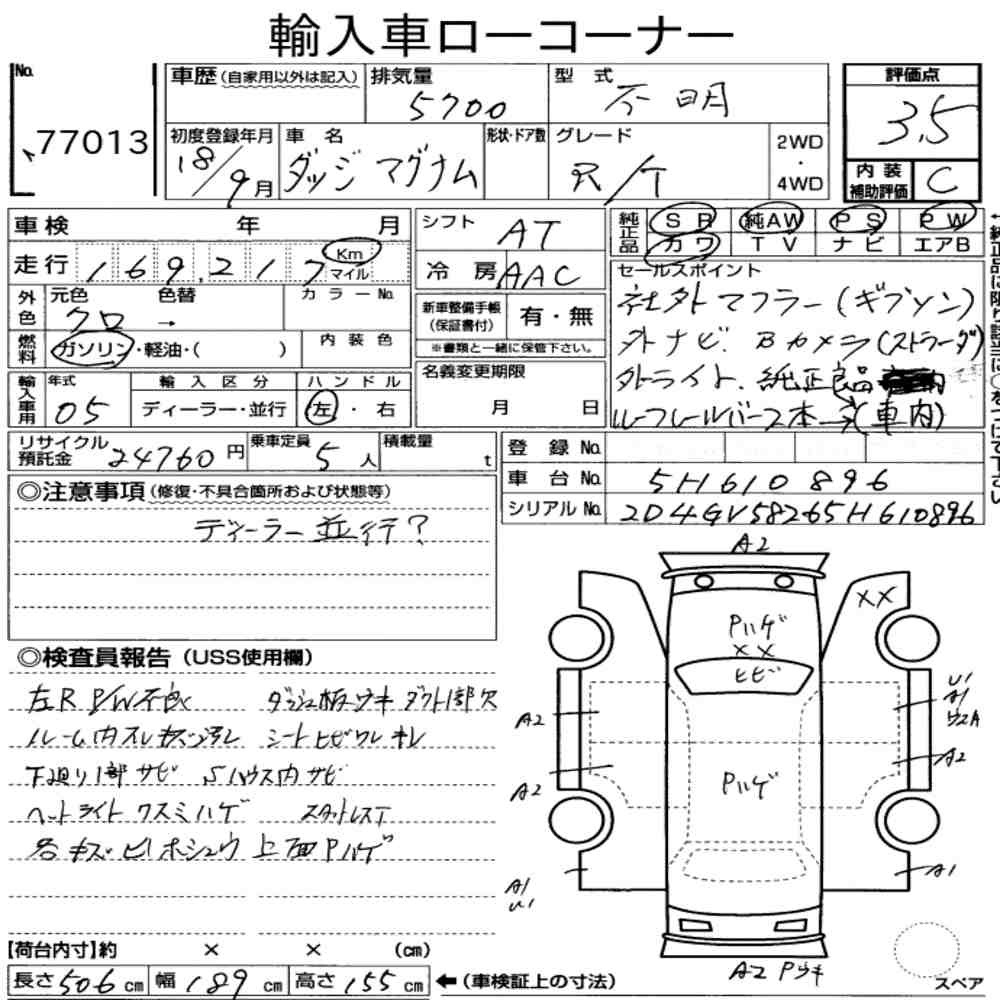 輸入車ローコーナー
No. 77013
車歴(自家用以外は記入)
排気量 5700
型式 不明
評価点 3.5
初度登録年月 18/9月
車名 ダッジ マグナム
形状・ドア数
グレード R/T
2WD・4WD
内装補助評価 C
車検 年 月
シフト AT
純正品 SR 純AW PS PW
カワ TV ナビ エアB
走行 169,217 Km マイル
冷房 AAC
セールスポイント
社外マフラー(ギブソン)
外ナビ. Bカメラ(ストラーダ)
外ライト. 純正良品
ルーフレールバー2本→(車内)
外色 元色 クロ → 色替 カラーNo.
新車整備手帳(保証書付) 有・無
※書類と一緒に保管下さい。
燃料 ガソリン・軽油・( ) 内装色
名義変更期限 月 日
輸入車用 年式 05
輸入区分 ディーラー・並行
ハンドル 左・右
リサイクル預託金 24760円
乗車定員 5人
積載量 t
登録No.
車台No. 5H610896
シリアルNo. 2D4GV58265H610896
◎注意事項(修復・不具合箇所および状態等)
ディーラー並行?
◎検査員報告(USS使用欄)
左R P/W不良 ダッシュ板ウキ ダクト1部欠
ルーム内スレキズ汚レ シートヒビワレキレ
下廻り1部サビ Sハウス内サビ
ヘットライトクスミハゲ スタットレスT
各キズ・ヒ1ホシュウ 上面Pハゲ
A2
XX
Pハゲ
XX
ヒビ
U1
A1
A2
A2
A2
Pハゲ
A1
U1
A1
A2 Pウキ
スペア
【荷台内寸】約 × × (cm)
長さ506cm 幅189cm 高さ155cm ←(車検証上の寸法)